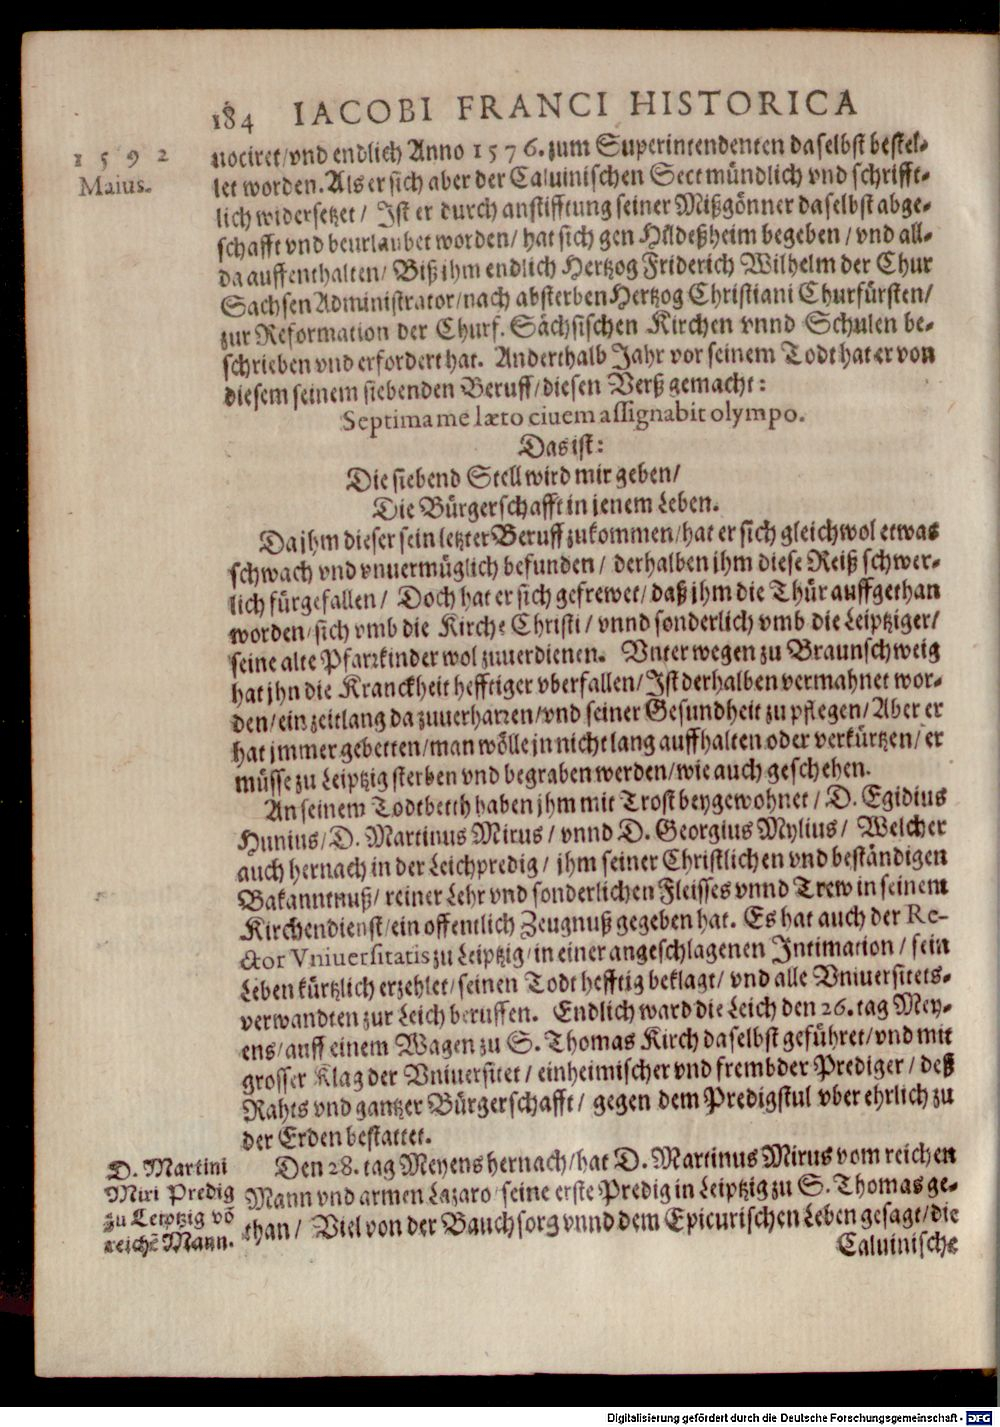 184 IACOBI FRANCI HISTORICA
1592
Maius.
uociret/vnd endlich Anno 1576. zum Superintendenten daselbst bestel-
let worden. Als er sich aber der Caluinischen Sect mündlich vnd schrifft-
lich widersetzet/ Ist er durch anstifftung seiner Mißgönner daselbst abge-
schafft vnd beurlaubet worden/ hat sich gen Hildeßheim begeben/ vnd all-
da auffenthalten/ Biß jhm endlich Hertzog Friderich Wilhelm der Chur
Sachsen Administrator/nach absterben Hertzog Christiani Churfürsten/
zur Reformation der Churf. Sächsischen Kirchen vnnd Schulen be-
schrieben vnd erfordert hat. Anderthalb Jahr vor seinem Todt hat er von
diesem seinem siebenden Beruff/diesen Verß gemacht:
Septima me læto ciuem assignabit olympo.
Das ist:
Die siebend Stell wird mir geben/
Die Bürgerschafft in jenem Leben.
Da jhm dieser sein letzter Beruff zukommen/hat er sich gleichwol etwas
schwach vnd vnuermüglich befunden/ derhalben jhm diese Reiß schwer-
lich fürgefallen/ Doch hat er sich gefrewet/ daß jhm die Thür auffgethan
worden/sich vmb die Kirche Christi/ vnnd sonderlich vmb die Leiptziger/
seine alte Pfarrkinder wol zuuerdienen. Vnter wegen zu Braunschweig
hat jhn die Kranckheit hefftiger vberfallen/ Ist derhalben vermahnet wor-
den/ein zeitlang da zuuerharren/vnd seiner Gesundheit zu pflegen/Aber er
hat jmmer gebetten/man wölle jn nicht lang auffhalten oder verkürtzen/ er
müsse zu Leiptzig sterben vnd begraben werden/wie auch geschehen.
An seinem Todtbetth haben jhm mit Trost beygewohnet/ D. Egidius
Hunius/D. Martinus Mirus/ vnnd D. Georgius Mylius/ Welcher
auch hernach in der Leichpredig/ jhm seiner Christlichen vnd beständigen
Bakanntnuß/ reiner Lehr vnd sonderlichen Fleisses vnnd Trew in seinem
Kirchendienst/ein offentlich Zeugnuß gegeben hat. Es hat auch der Re-
ctor Vniuersitatis zu Leiptzig/in einer angeschlagenen Intimation/ sein
Leben kürtzlich erzehlet/seinen Todt hefftig beklagt/ vnd alle Vniuersitets-
verwandten zur Leich beruffen. Endlich ward die Leich den 26. tag Mey-
ens/auff einem Wagen zu S. Thomas Kirch daselbst geführet/vnd mit
grosser Klag der Vniuersitet/ einheimischer vnd frembder Prediger/ deß
Rahts vnd gantzer Bürgerschafft/ gegen dem Predigstul vber ehrlich zu
der Erden bestattet.
D. Martini
Miri Predig
zu Leiptzig võ
reichē Mann.
Den 28. tag Meyens hernach/hat D. Martinus Mirus vom reichen
Mann vnd armen Lazaro/seine erste Predig in Leiptzig zu S. Thomas ge-
than/ Viel von der Bauchsorg vnnd dem Epicurischen Leben gesagt/die
Caluinische
Digitalisierung gefördert durch die Deutsche Forschungsgemeinschaft - DFG